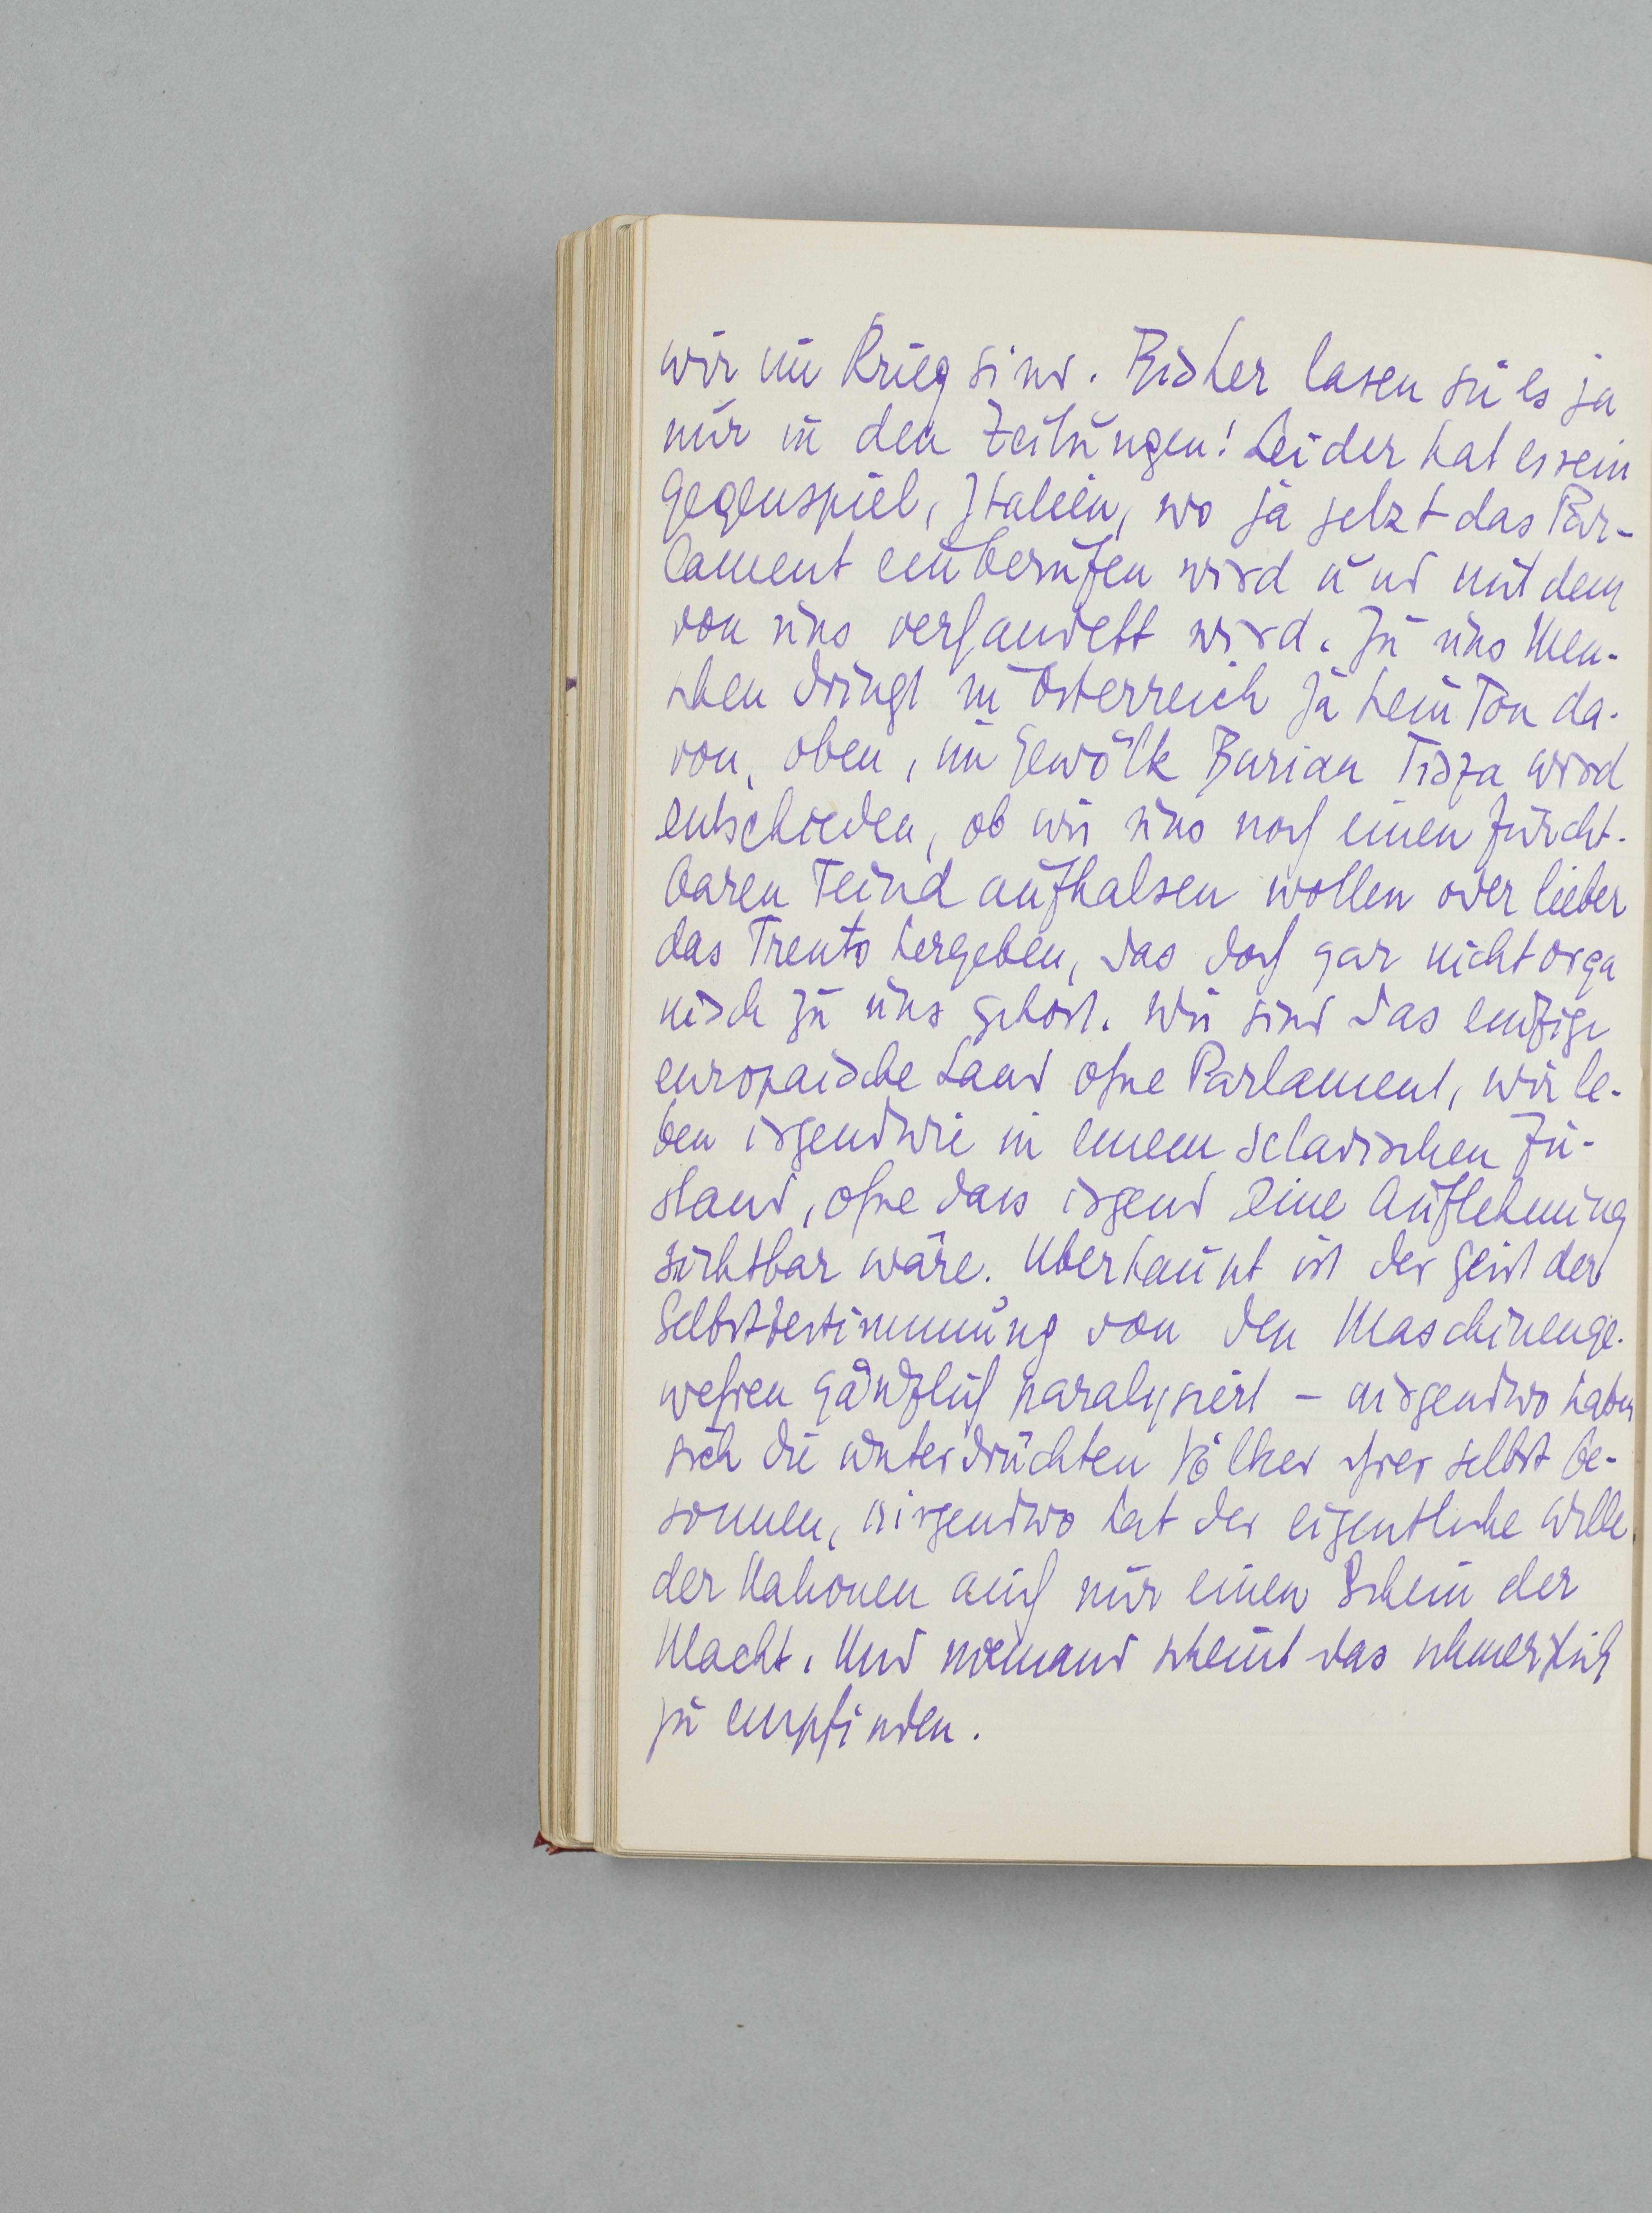 wir im Krieg sind. Bisher lasen sie es ja
nur in den Zeitungen! Leider hat es sein
Gegenspiel, Italien, wo ja jetzt das Par-
lament einberufen wird und mit dem
von uns verhandelt wird. Zu uns Men-
schen dringt in Österreich ja kein Ton da-
von, oben, im Gewölk Burian Tisza wird
entschieden, ob wir uns noch einen furcht-
baren Feind aufhalsen wollen oder lieber
das Trento hergeben, das doch gar nicht orga
nisch zu uns gehört. Wir sind das einzige
europäische Land ohne Parlament, wir le-
ben irgendwie in einem sclavischen Zu-
stand, ohne dass irgend eine Auflehnung
sichtbar wäre. Überhaupt ist der Geist der
Selbstbestimmung von den Maschinenge-
wehren gänzlich paralysiert – nirgendwo haben
sich die unterdrückten Völker ihrer selbst be-
sonnen, nirgendwo hat der eigentliche Wille
der Nationen auch nur einen Schein der
Macht. Und niemand scheint das schmerzlich
zu empfinden.